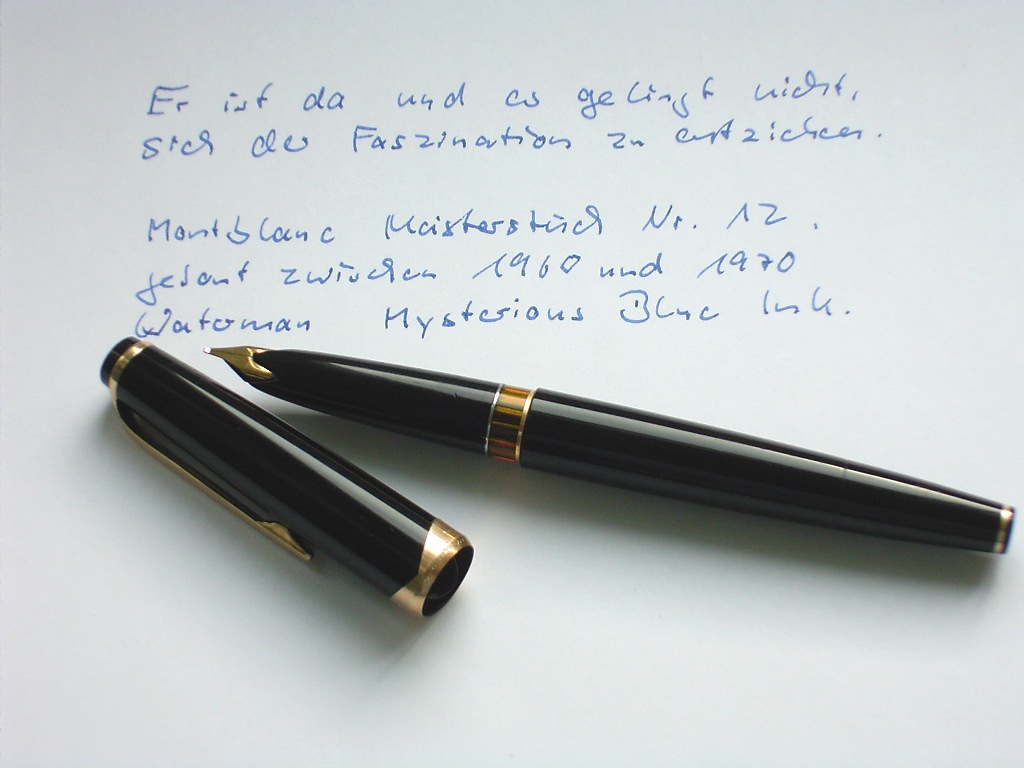 Er ist da und es gelingt nicht,
sich der Faszination zu entziehen.
Montblanc Meisterstück Nr. 12.
gebaut zwischen 1960 und 1970
Waterman Mysterious Blue Ink.